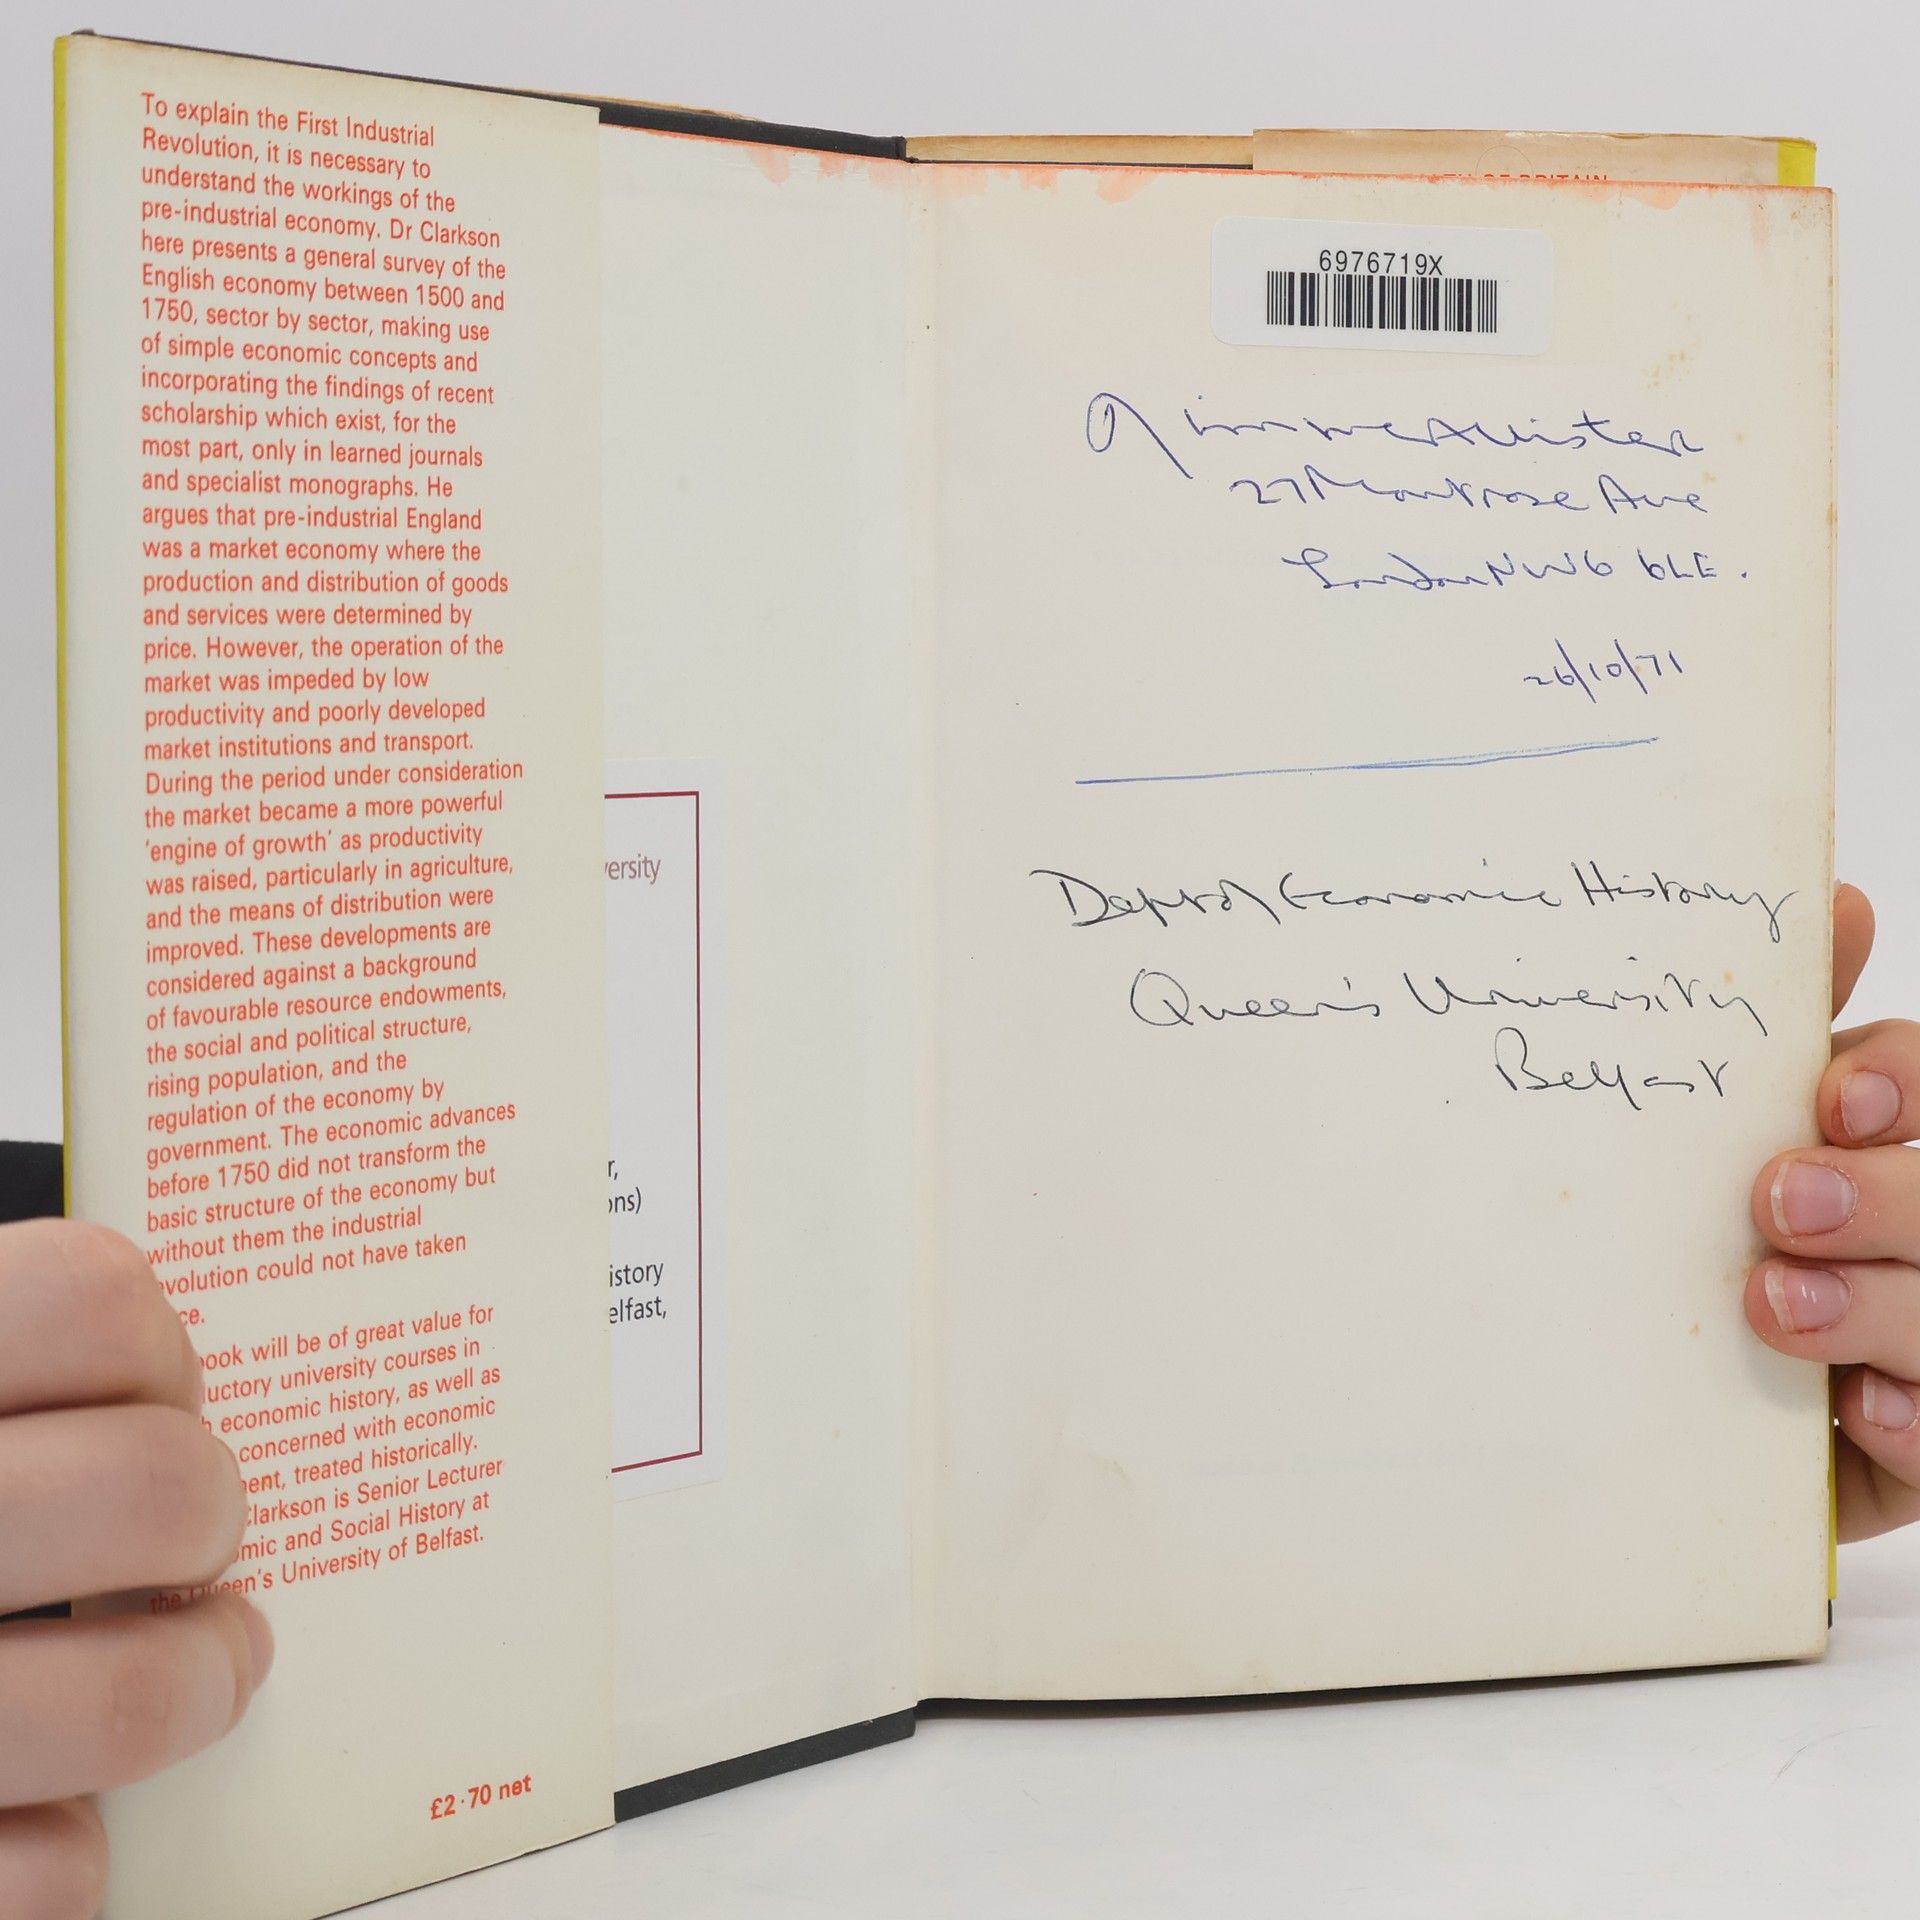 To explain the First Industrial
Revolution, it is necessary to
understand the workings of the
pre-industrial economy. Dr Clarkson
here presents a general survey of the
English economy between 1500 and
1750, sector by sector, making use
of simple economic concepts and
incorporating the findings of recent
scholarship which exist, for the
most part, only in learned journals
and specialist monographs. He
argues that pre-industrial England
was a market economy where the
production and distribution of goods
and services were determined by
price. However, the operation of the
market was impeded by low
productivity and poorly developed
market institutions and transport.
During the period under consideration
the market became a more powerful
'engine of growth' as productivity
was raised, particularly in agriculture,
and the means of distribution were
improved. These developments are
considered against a background
of favourable resource endowments,
the social and political structure,
rising population, and the
regulation of the economy by
government. The economic advances
before 1750 did not transform the
basic structure of the economy but
without them the industrial
evolution could not have taken
ce.
ook will be of great value for
uctory university courses in
h economic history, as well as
concerned with economic
ent, treated historically.
Clarkson is Senior Lecturer
omic and Social History at
the Queen's University of Belfast.
£2·70 net
versity
r,
ons)
istory
elfast,
OF BRITAIN
6976719X
Jim McAllister
27 Montrose Ave
London NW6 6LE.
26/10/71
Dept of Economic History
Queen's University
Belfast